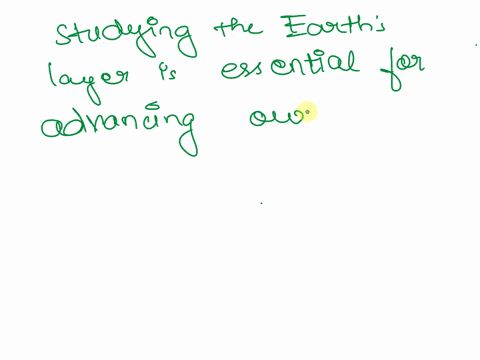 Studying the Earth's
layer is essential for
advancing our